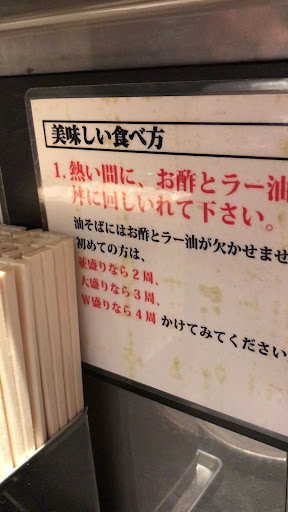 美味しい食べ方
1. 熱い間に、お酢とラー油
丼に回しいれて下さい。
油そばにはお酢とラー油が欠かせませ
初めての方は、
並盛りなら2周、
大盛りなら3周、
W盛りなら4周 かけてみてください